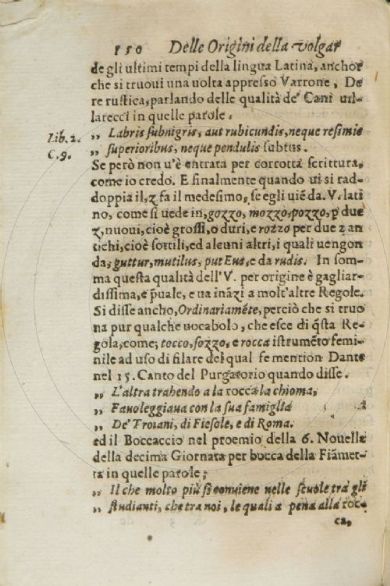 150 Delle Origini della volgar
de gli ultimi tempi della lingua Latina, anchor
che si truovi una volta appresso Varrone, De
re rustica, parlando delle qualità de' Cani vil-
larecci in quelle parole.
Lib. 2.
C. 9.
„ Labris subnigris, aut rubicundis, neque resimis
„ superioribus, neque pendulis subtus.
Se però non v'è entrata per corrotta scrittura,
come io credo. E finalmente quando vi si rad-
doppia il, z fa il medesimo, se egli vié da. V. lati-
no, come si vede in, gozzo, mozzo, pozzo, p due
z, nuovi, cioè grossi, o duri, e rozzo per due z an
tichi, cioè sottili, ed alcuni altri, i quali vengon
da, guttur, mutilus, puteus, e da rudis. In som-
ma questa qualità dell'V. per origine è gagliar-
dissima, e puale, e va inãzi a molt'altre Regole.
Si disse ancho, Ordinariaméte, perciò che si truo
na pur qualche vocabolo, che esce di q̃sta Re-
gola, come, tocco, sozzo, e rocca istruméto femi-
nile ad uso di filare del qual fe mention Dante
nel 15. Canto del Purgatorio quando disse.
„ L'altra trahendo a la rocca la chioma,
„ Favoleggiava con la sua famiglia
„ De' Troiani, di Fiesole, e di Roma.
ed il Boccaccio nel proemio della 6. Novella
della decima Giornata per bocca della Fiãmet-
ta in quelle parole;
„ Il che molto più si conviene nelle scuole tra gli
„ studianti, che tra noi, le quali a pena alla roc-
ca,